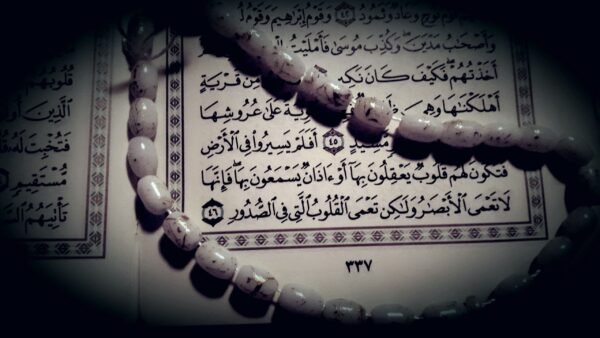 نُوحٍ وَعَادٌ وَثَمُودُ ٤٢ وَقَوْمُ إِبْرَٰهِيمَ وَقَوْمُ
وَأَصْحَٰبُ مَدْيَنَۖ وَكُذِّبَ مُوسَىٰ فَأَمْلَيْتُ
أَخَذْتُهُمْۖ فَكَيْفَ كَانَ مِّن قَرْيَةٍ
أَهْلَكْنَٰهَا وَهِىَ عَلَىٰ عُرُوشِهَا
مَّشِيدٍ ٤٥ أَفَلَمْ يَسِيرُوا۟ فِى ٱلْأَرْضِ
فَتَكُونَ لَهُمْ قُلُوبٌ يَعْقِلُونَ بِهَآ أَوْ ءَاذَانٌ يَسْمَعُونَ بِهَاۖ فَإِنَّهَا
لَا تَعْمَى ٱلْأَبْصَٰرُ وَلَٰكِن تَعْمَى ٱلْقُلُوبُ ٱلَّتِى فِى ٱلصُّدُورِ ٤٦
٣٣٧
قُلُوبُهُمْ
ٱلَّذِينَ
فَتُخْبِتَ لَهُۥ
مُّسْتَقِيمٍ
تَأْتِيَهُمُ